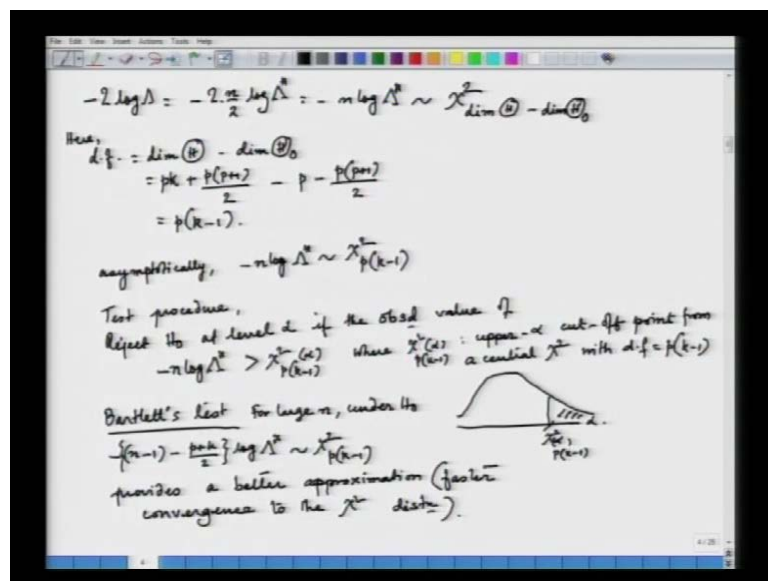 File Edit View Insert Actions Tools Help
-2 log Λ = -2. n/2 log Λ* = - n log Λ* ~ χ²_{dim Ⓗ - dim Ⓗ₀}
Here,
d.f. = dim Ⓗ - dim Ⓗ₀
= pk + p(p+1)/2 - p - p(p+1)/2
= p(k-1).
asymptotically, -n log Λ* ~ χ²_{p(k-1)}
Test procedure,
Reject H₀ at level α if the obsd value of
-n log Λ* > χ²_{p(k-1)}(α) where χ²_{p(k-1)}(α) : upper-α cut-off point from a central χ² with d.f = p(k-1)
Bartlett's test For large n, under H₀
-{(n-1) - (p+k)/2} log Λ* ~ χ²_{p(k-1)}
α.
χ²_{p(k-1)}(α)
provides a better approximation (faster
convergence to the χ² distn).
4/25